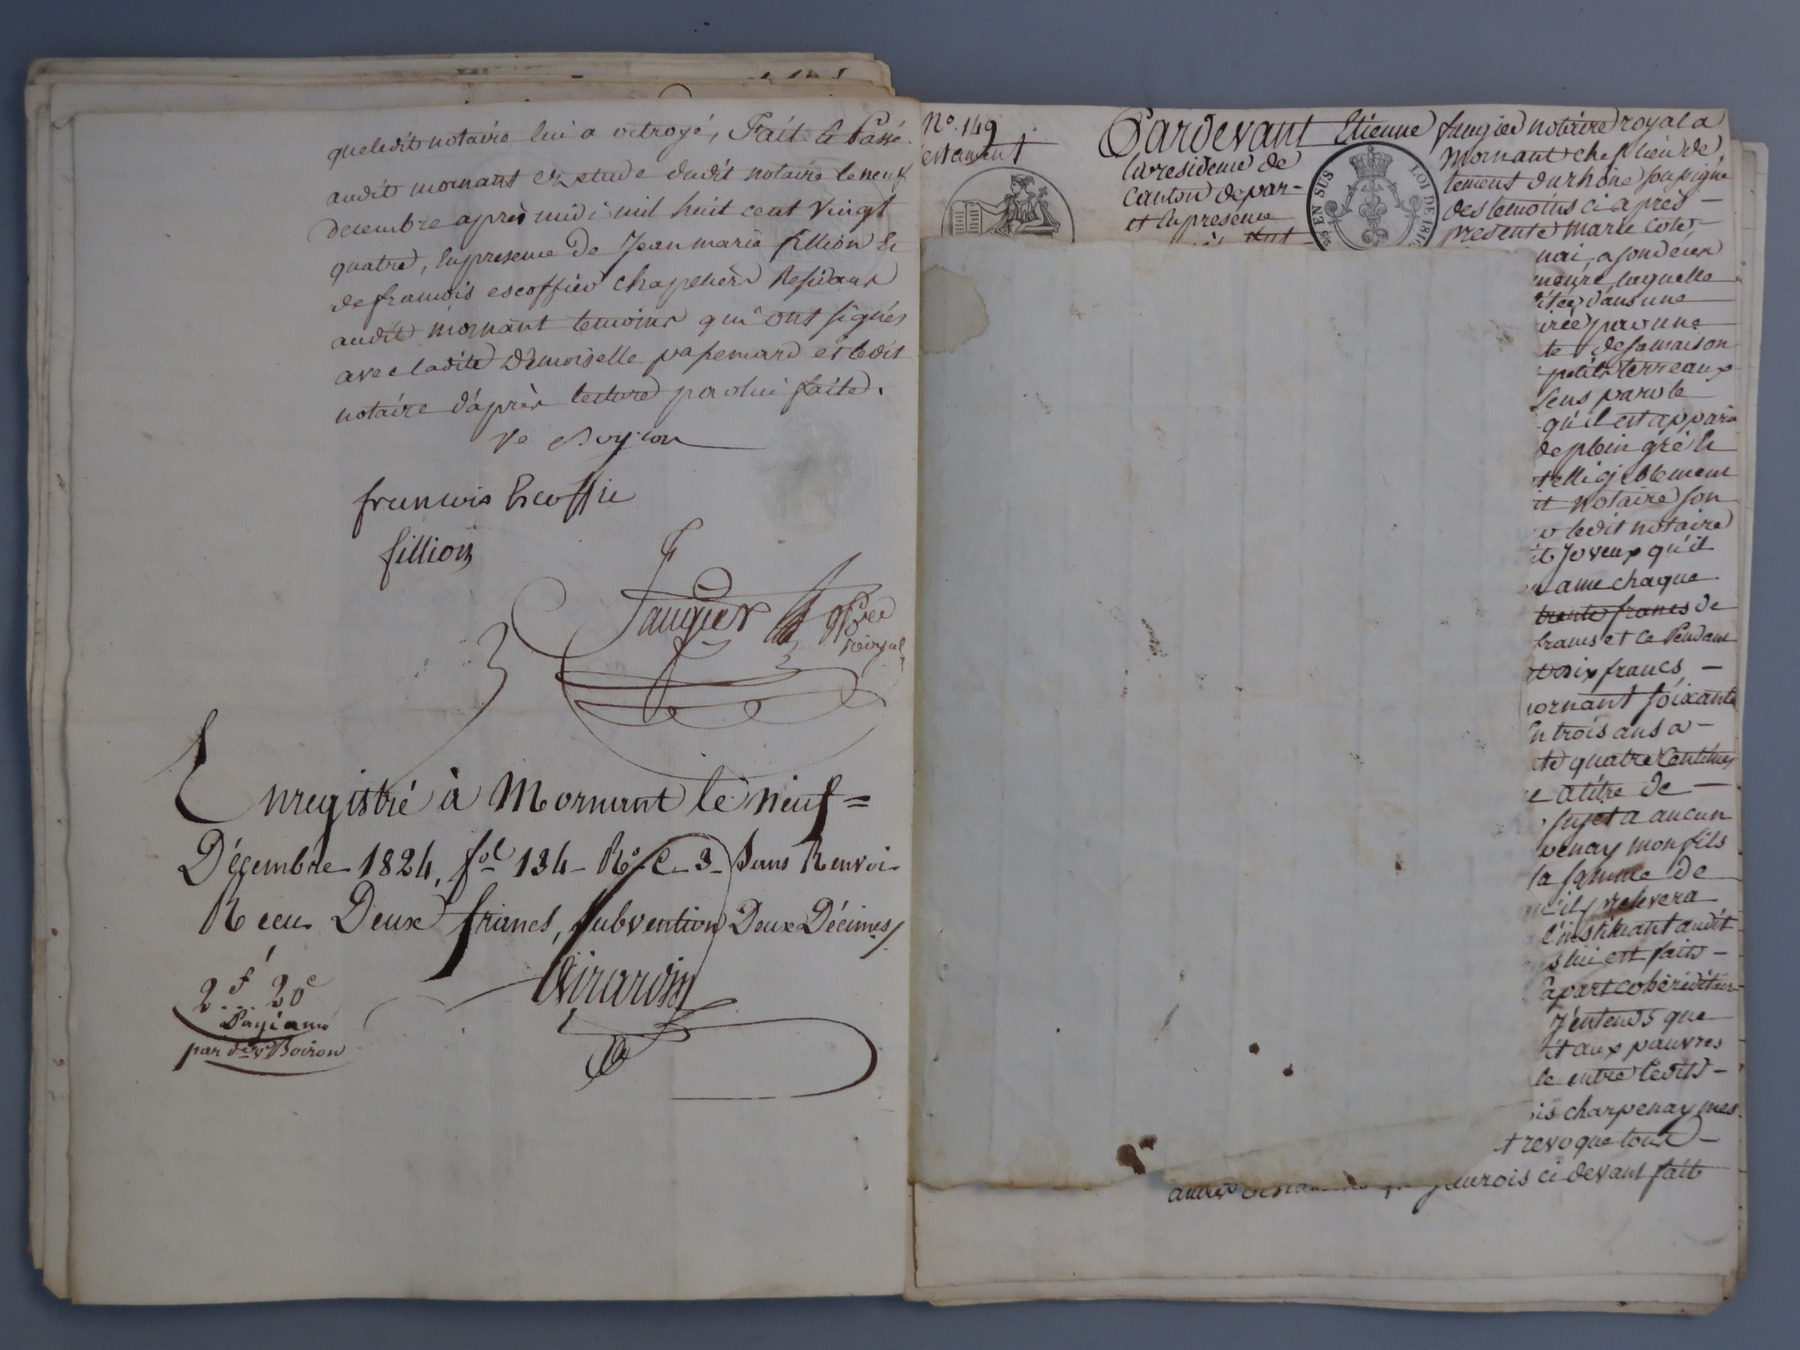 que ledit notaire lui a octroyé, Fait & Passé
audit mornant en etude dudit notaire le neuf
decembre après midi mil huit cent vingt
quatre, en presence de Jean marie fillion &
de francois escoffier chapeliers Residant
audit mornant temoins qui ont signés
avec ladite demoiselle et ledit
notaire d'après lecture par lui faite.
ve Boyron
francois Escoffie
fillion
Faugier Nre
royal
Enregistré à Mornant le neuf=
Décembre 1824, fol 134 Ro C. 3 Sans Renvoi
Recu Deux francs, subvention Deux Décimes
2f 20c
Girardin
par de ve Boiron
No. 149
testament
Pardevant Etienne faugier notaire royal a
la residence de Mornant chef lieu de
canton depar- tement du rhône soussigné
et en presence des temoins ci après -
EN SUS
LOI DE
presente marie
nai, a
meure, laquelle
dans une
par une
te de sa maison
petits terreaux
sens parole
qu'il est apparu
de plein gré &
telligiblement
it notaire son
ledit notaire
it Je veux qu'il
ame chaque
trente francs de
francs et ce Pendant
dix francs -
mornant soixante
en trois ans a -
te quatre centimes
e a titre de -
sujet a aucun
penay mon fils
la somme de
qu'il prelevera
l'instituant audit
lui est faits -
a part cohéréditaire
J'entends que
it aux pauvres
le entre lesdits -
is charpenay mes
t revoque tout -
autres jaurois ci devant fait